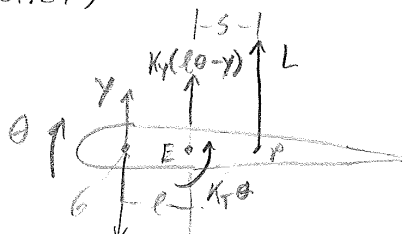 S
Ky(lθ-y)
L
y
θ
E
P
G
l
K_T θ